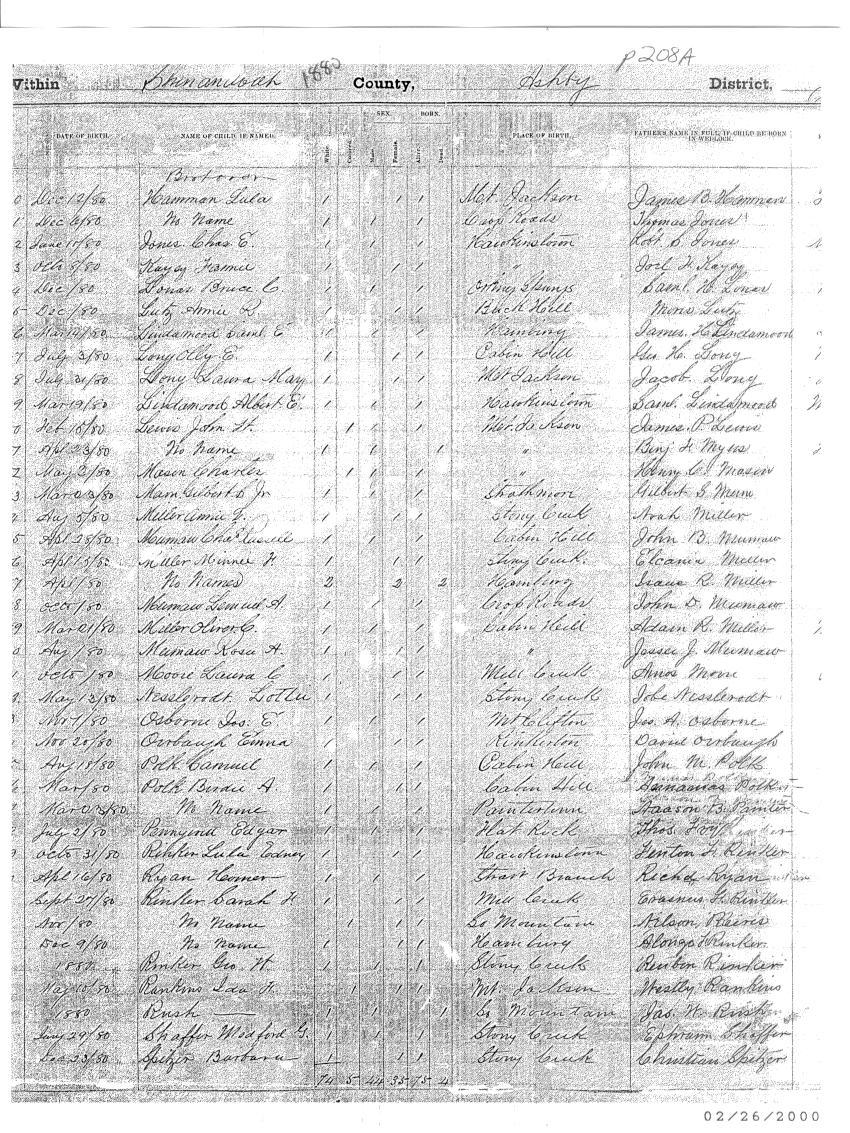 p208A
Within Shenandoah 1880 County, Ashby District,
SEX. BORN.
DATE OF BIRTH. NAME OF CHILD, IF NAMED. White. Colored. Male. Female. Alive. Dead. PLACE OF BIRTH. FATHER'S NAME IN FULL, IF CHILD BE BORN IN WEDLOCK.
0 Dec 12/80 Hamman Lula 1 1 1 Mt. Jackson James B. Hamman
1 Dec 6/80 No Name 1 1 1 Crop Roads Thomas Jones
2 June 10/80 Jones Chas. E. 1 1 1 Hawkinstown Robt. D. Jones
3 Oct 8/80 Fannie 1 1 1 " Joel H.
4 Dec /80 Lonas Bruce C. 1 1 1 Orkney Springs Saml. H. Lonas
5 Dec /80 Lutz Annie R. 1 1 1 Buck Hill Lutz
6 Mar 19/80 Lindamood Saml. E 1 1 1 Hamburg James. H. Lindamood
7 July 3/80 Long Olly E. 1 1 1 Cabin Hill Geo. H. Long
8 July 31/80 Long Laura May 1 1 1 Mt Jackson Jacob Long
9 Mar 19/80 Lindamood Albert E. 1 1 1 Hawkinstown Saml. Lindamood
0 Feb 15/80 Lewis John H. 1 1 1 Mt. Jackson James. P. Lewis
Apl 23/80 No Name 1 1 1 " Benj F. Myers
2 May 3/80 Mason Charles 1 1 1 " Henry C. Mason
3 Mar 23/80 Mam Gilbert D Jr 1 1 1 Strathmore Gilbert S
Aug 5/80 Miller Annie 1 1 1 Stony Creek Noah Miller
5 Apl 28/80 Mumaw Chas 1 1 1 Cabin Hill John B. Mumaw
6 Apl 15/80 Miller Minnie F. 1 1 1 Stony Creek Miller
7 Apl /80 No Names 2 2 2 Hamburg Isaac R. Miller
8 Oct /80 Mumaw Lemuel A. 1 1 1 Crop Roads John D. Mumaw
9 Mar 21/80 Miller Oliver C. 1 1 1 Cabin Hill Adam R. Miller
0 Aug /80 Mumaw Rosa A. 1 1 1 " Jesse J. Mumaw
Oct /80 Moore Laura C 1 1 1 Mill Creek Amos Moore
May 13/80 Nesslerodt Lottie 1 1 1 Stony Creek Jobe Nesslerodt
/80 Osborne Jos. E. 1 1 1 Mt Clifton Jos. A. Osborne
Nov 20/80 Orrbaugh Emma 1 1 1 Rinkerton David Orrbaugh
Aug 18/80 Polk Samuel 1 1 1 Cabin Hill John M. Polk
Mar /80 Polk Birdie A 1 1 1 Cabin Hill Polk
Mar 23/80 No Name 1 1 1 Paintertown B. Painter
July 2/80 Edgar 1 1 1 Flat Rock Thos.
Oct 31/80 Rinker Lula Edney 1 1 1 Hawkinstown Fenton F. Rinker
Apl 16/80 Ryan Homer 1 1 1 Branch Richd Ryan
Sept 27/80 Rinker Sarah F 1 1 1 Mill Creek Erasmus F. Rinker
Nov /80 No Name 1 1 1 So Mountain Nelson
Dec 9/80 No Name 1 1 1 Hamburg Alonzo Rinker
1880 Rinker Geo. W. 1 1 1 Stony Creek Reuben Rinker
May 10/80 Rankins Ida F. 1 1 1 Mt. Jackson Westly Rankins
1880 Rush 1 1 1 So Mountain Jas. W. Rush
Jany 29/80 Shaffer Medford G. 1 1 1 Stony Creek Ephram Shaffer
Dec 23/80 Spitzer Barbara 1 1 1 Stony Creek Christian Spitzer
74 5 44 35 75 4
02/26/2000